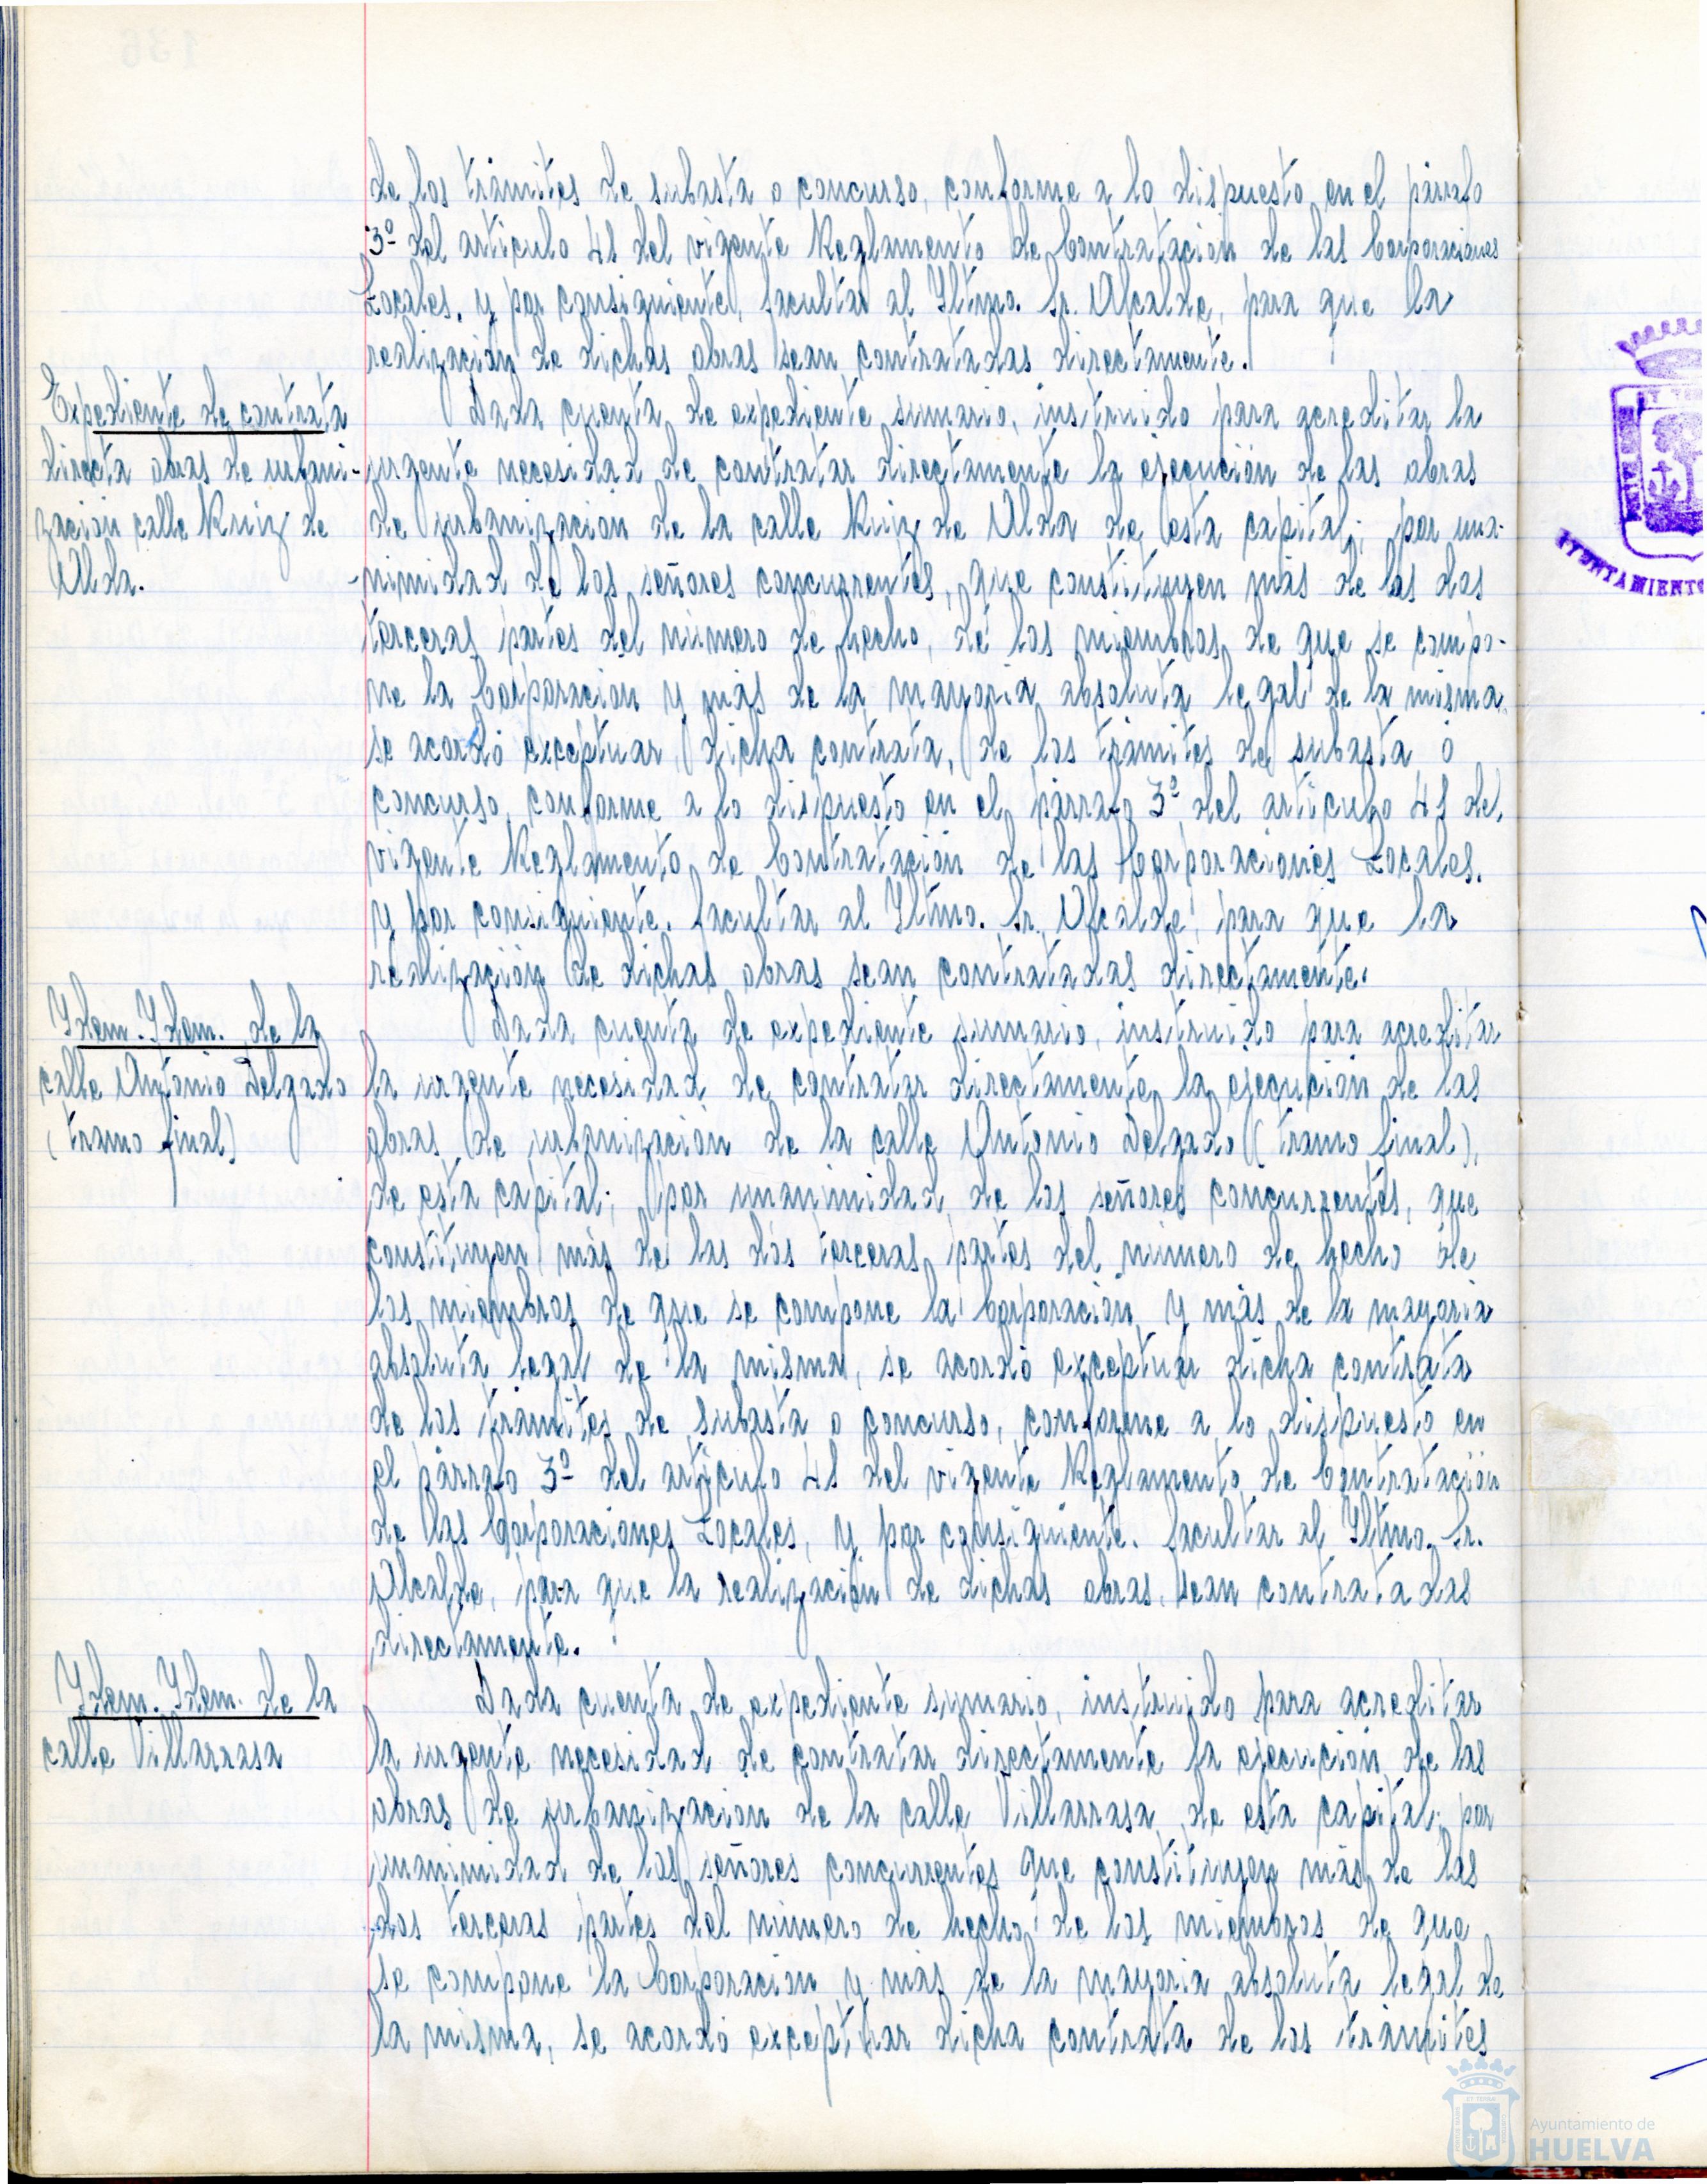 de los trámites de subasta o concurso, conforme a lo dispuesto en el párrafo
3º del artículo 41 del vigente Reglamento de Contratación de las Corporaciones
Locales, y por consiguiente, facultar al Iltmo. Sr. Alcalde, para que la
realización de dichas obras sean contratadas directamente.
Expediente de contrata
directa obras de urbani-
zación calle Ruiz de
Alda.
Dada cuenta de expediente sumario, instruido para acreditar la
urgente necesidad de contratar directamente la ejecución de las obras
de urbanización de la calle Ruiz de Alda de esta capital; por una-
nimidad de los señores concurrentes, que constituyen más de las dos
terceras partes del número de hecho, de los miembros de que se compo-
ne la Corporación y más de la mayoría absoluta legal de la misma,
se acordó exceptuar, dicha contrata, de los trámites de subasta o
concurso, conforme a lo dispuesto en el párrafo 3º del artículo 41 del
vigente Reglamento de Contratación de las Corporaciones Locales.
y por consiguiente, facultar al Iltmo. Sr. Alcalde, para que la
realización de dichas obras sean contratadas directamente.
Idem. Idem. de la
calle Antonio Delgado
(tramo final)
Dada cuenta de expediente sumario, instruido para acreditar
la urgente necesidad de contratar directamente la ejecución de las
obras de urbanización de la calle Antonio Delgado (tramo final),
de esta capital; por unanimidad de los señores concurrentes, que
constituyen más de las dos terceras partes del número de hecho de
los miembros de que se compone la Corporación y más de la mayoría
absoluta legal de la misma, se acordó exceptuar dicha contrata
de los trámites de subasta o concurso, conforme a lo dispuesto en
el párrafo 3º del artículo 41 del vigente Reglamento de Contratación
de las Corporaciones Locales, y por consiguiente, facultar al Iltmo. Sr.
Alcalde, para que la realización de dichas obras, sean contratadas
directamente.
Idem. Idem. de la
calle Villarrasa
Dada cuenta de expediente sumario, instruido para acreditar
la urgente necesidad de contratar directamente la ejecución de las
obras de urbanización de la calle Villarrasa, de esta capital; por
unanimidad de los señores concurrentes que constituyen más de las
dos terceras partes del número de hecho de los miembros de que
se compone la Corporación y más de la mayoría absoluta legal de
la misma, se acordó exceptuar dicha contrata de los trámites
AYUNTAMIENTO
Ayuntamiento de
HUELVA